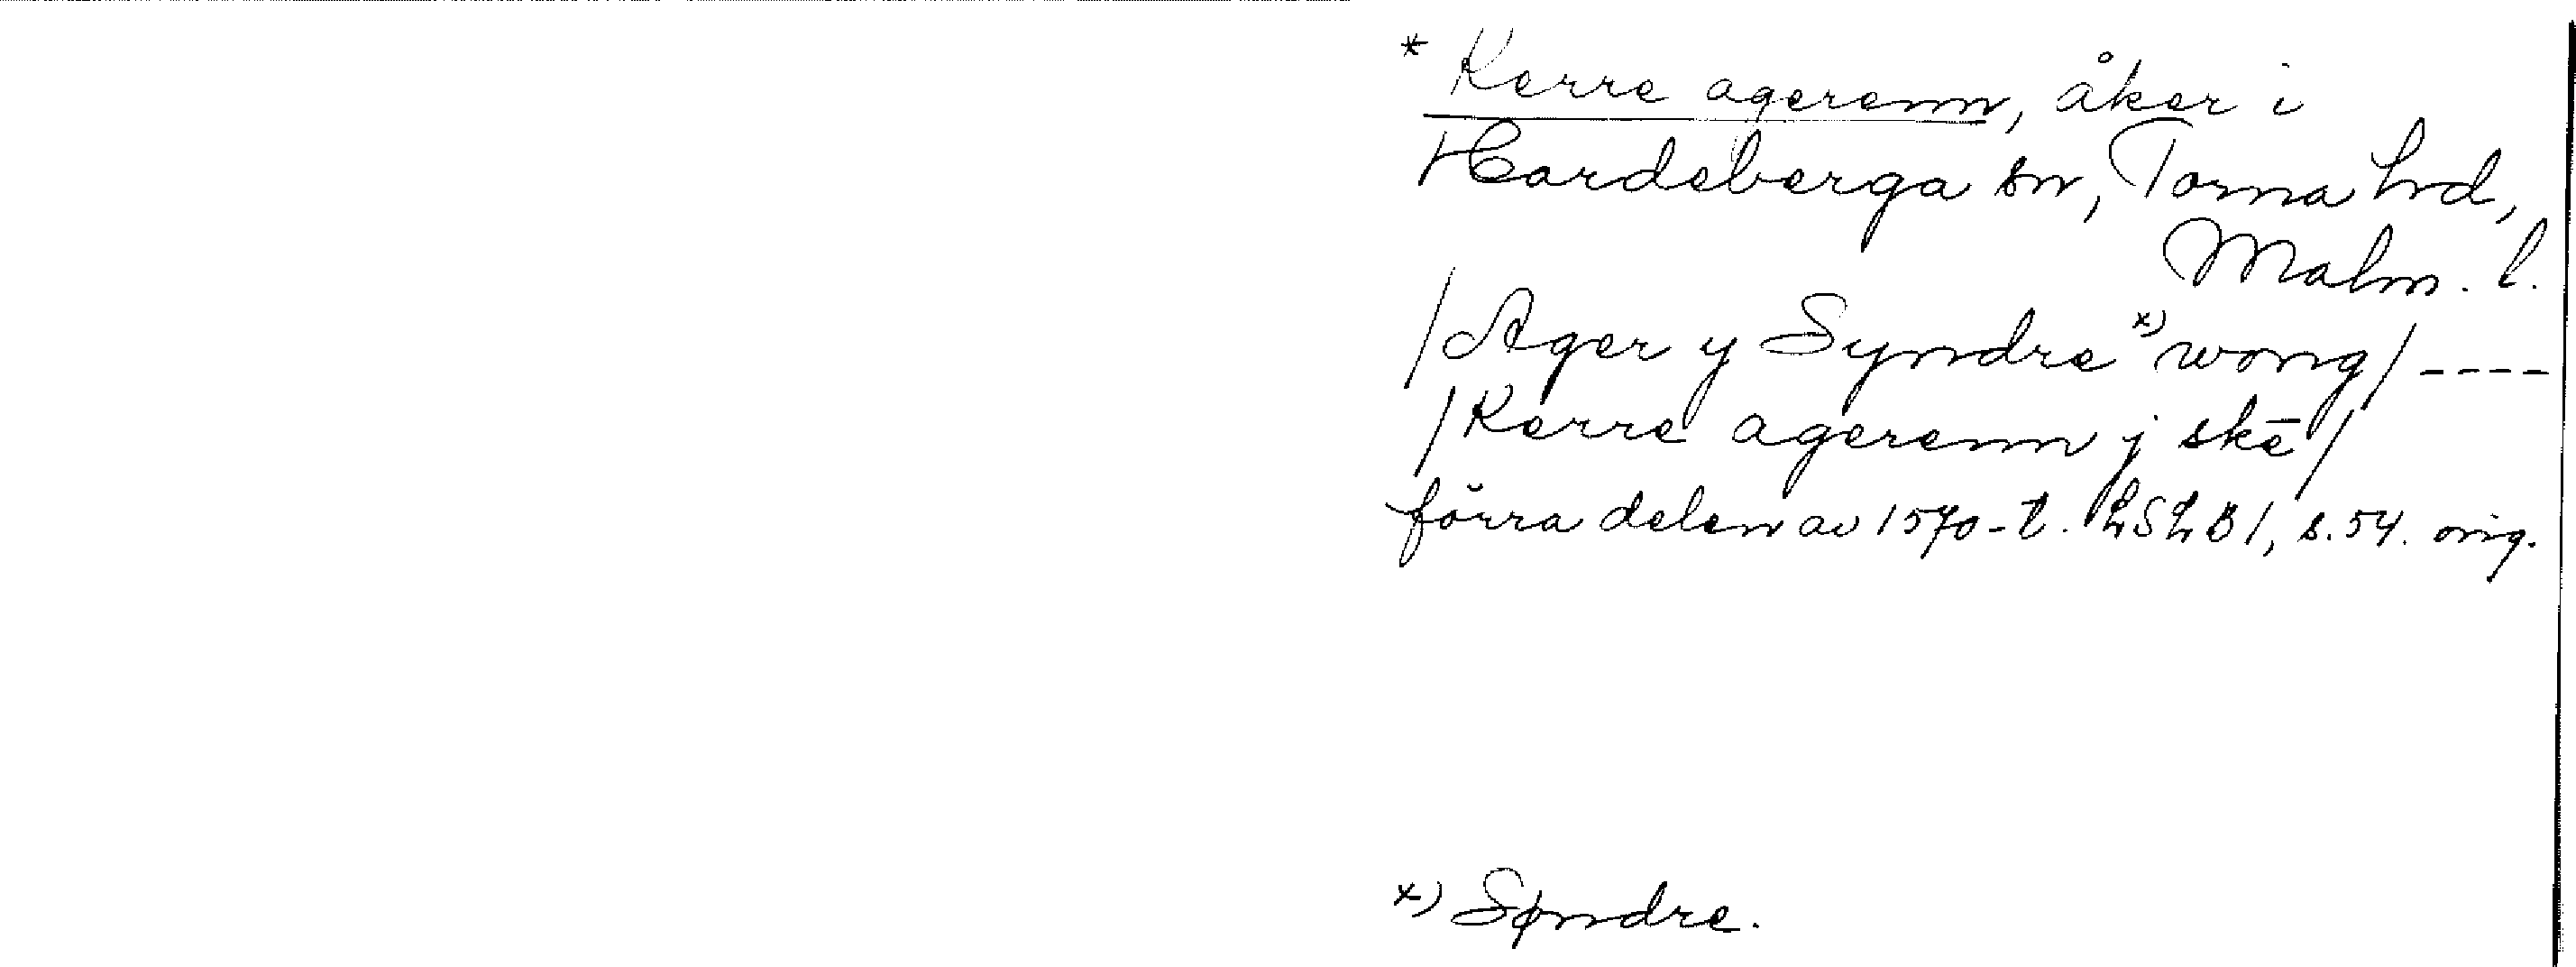 * Kerre agerenn, åker i
Hardeberga sn, Torna hrd,
Malm. l.
/Ager y Syndre x) wong/ ----
/Kerre agerenn j skē/
förra delen av 1570-t. LSLB 1, s. 54. orig.
x) Søndre.